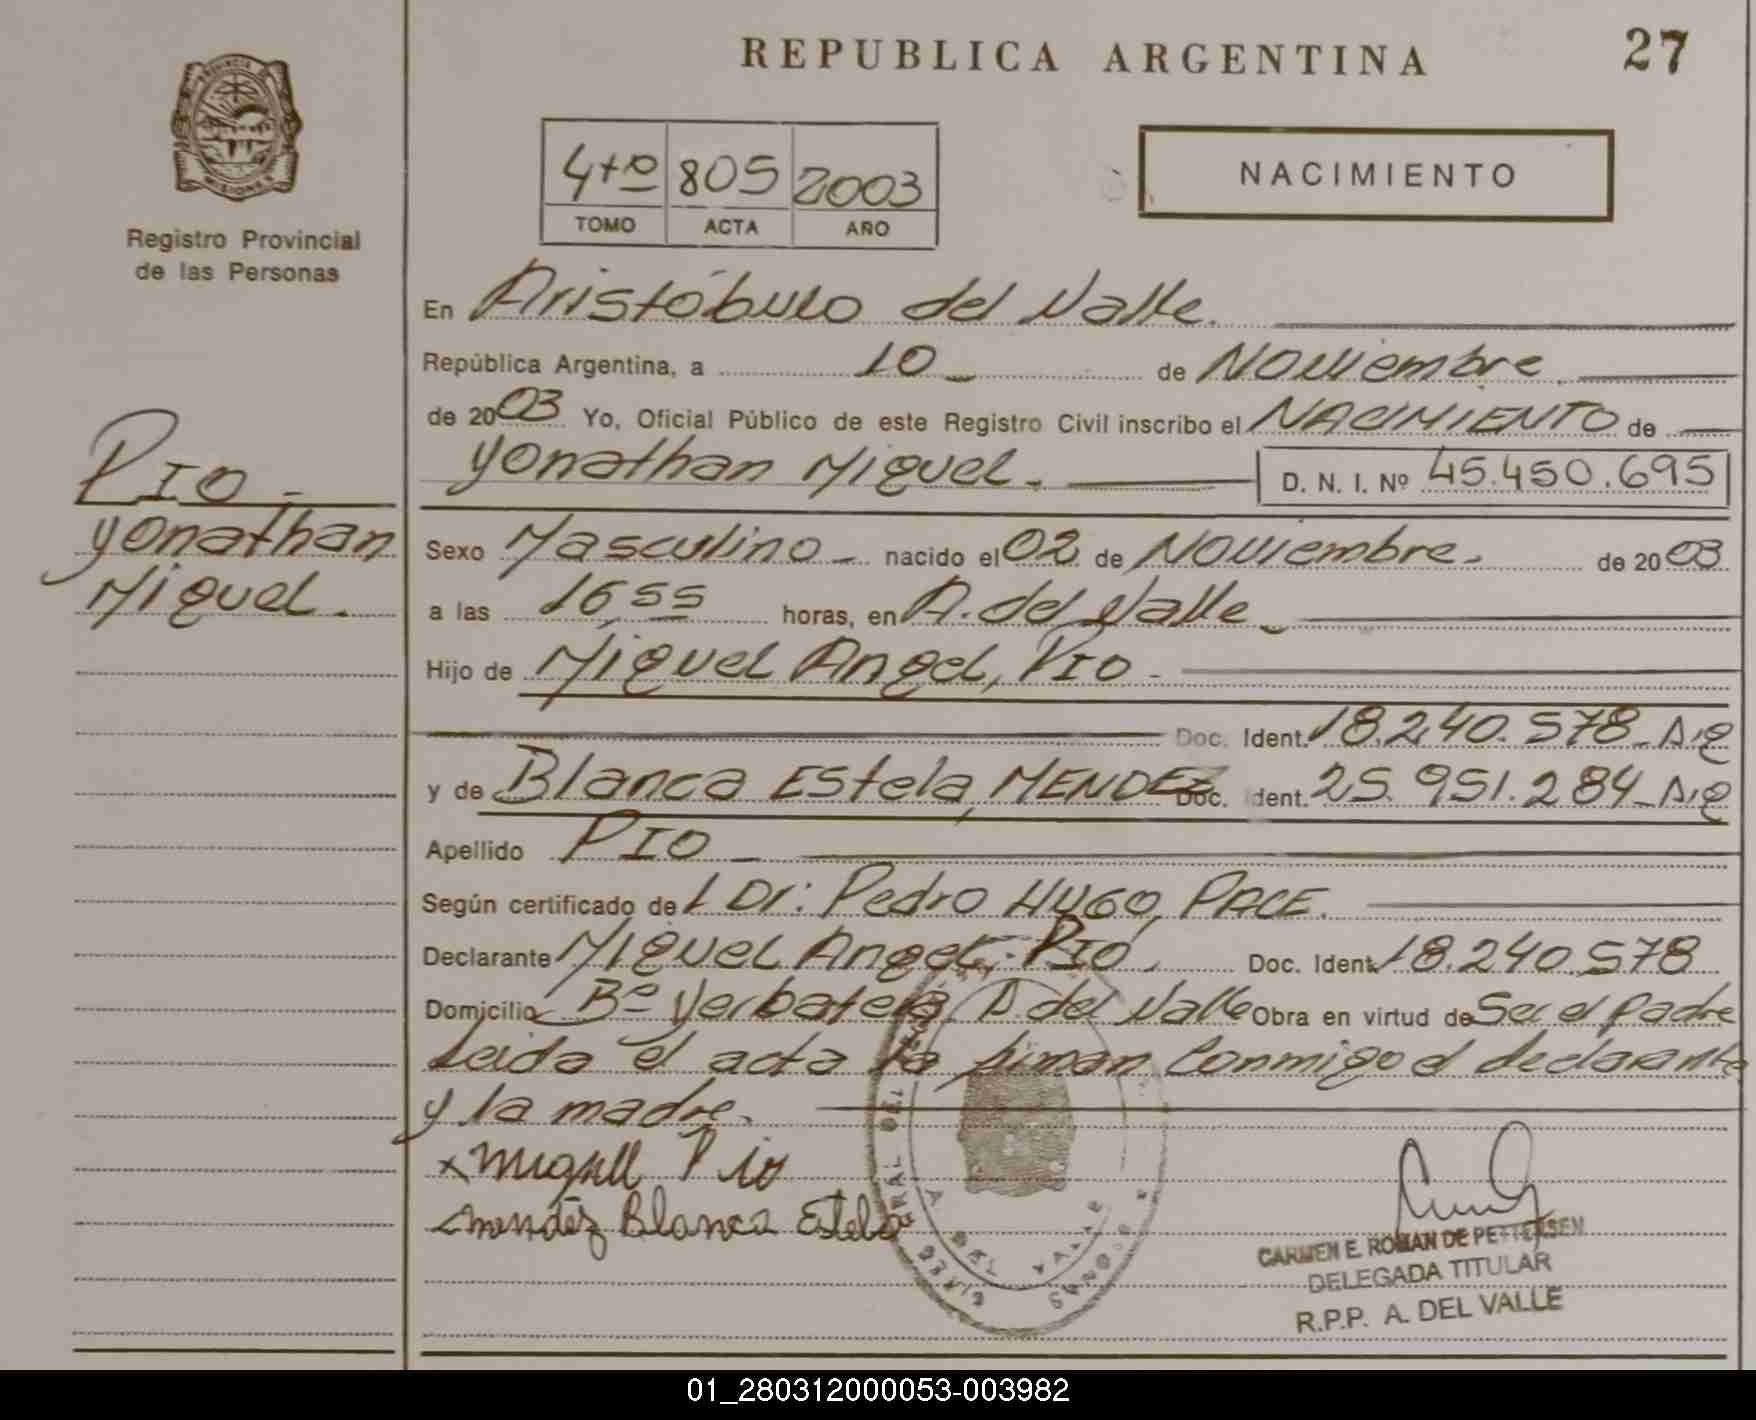 REPUBLICA ARGENTINA
27
PROVINCIA
MISIONES
Registro Provincial
de las Personas
4to 805 2003
TOMO ACTA AÑO
NACIMIENTO
En Aristóbulo del Valle.
República Argentina, a 10 de Noviembre
de 2003 Yo, Oficial Público de este Registro Civil inscribo el NACIMIENTO de
Yonathan Miguel. D. N. I. Nº 45.450.695
PIO -
Yonathan
Miguel.
Sexo Masculino nacido el 02 de Noviembre. de 2003
a las 16,55 horas, en A. del Valle
Hijo de Miguel Angel, PIO -
Doc. Ident. 18.240.578
y de Blanca Estela, MENDEZ Doc. Ident. 25.951.284
Apellido PIO
Según certificado de l Dr: Pedro HUGO, PACE.
Declarante Miguel Angel PIO. Doc. Ident. 18.240.578
Domicilio Bº Yerbatero A. del Valle Obra en virtud de Ser el padre
Leida el acta la firman conmigo el declarante
y la madre.
x Miguel Pio
Mendéz Blanca Estela
DEL VALLE
CARMEN E. ROMAN DE PETTERSEN
DELEGADA TITULAR
R.P.P. A. DEL VALLE
01_280312000053-003982